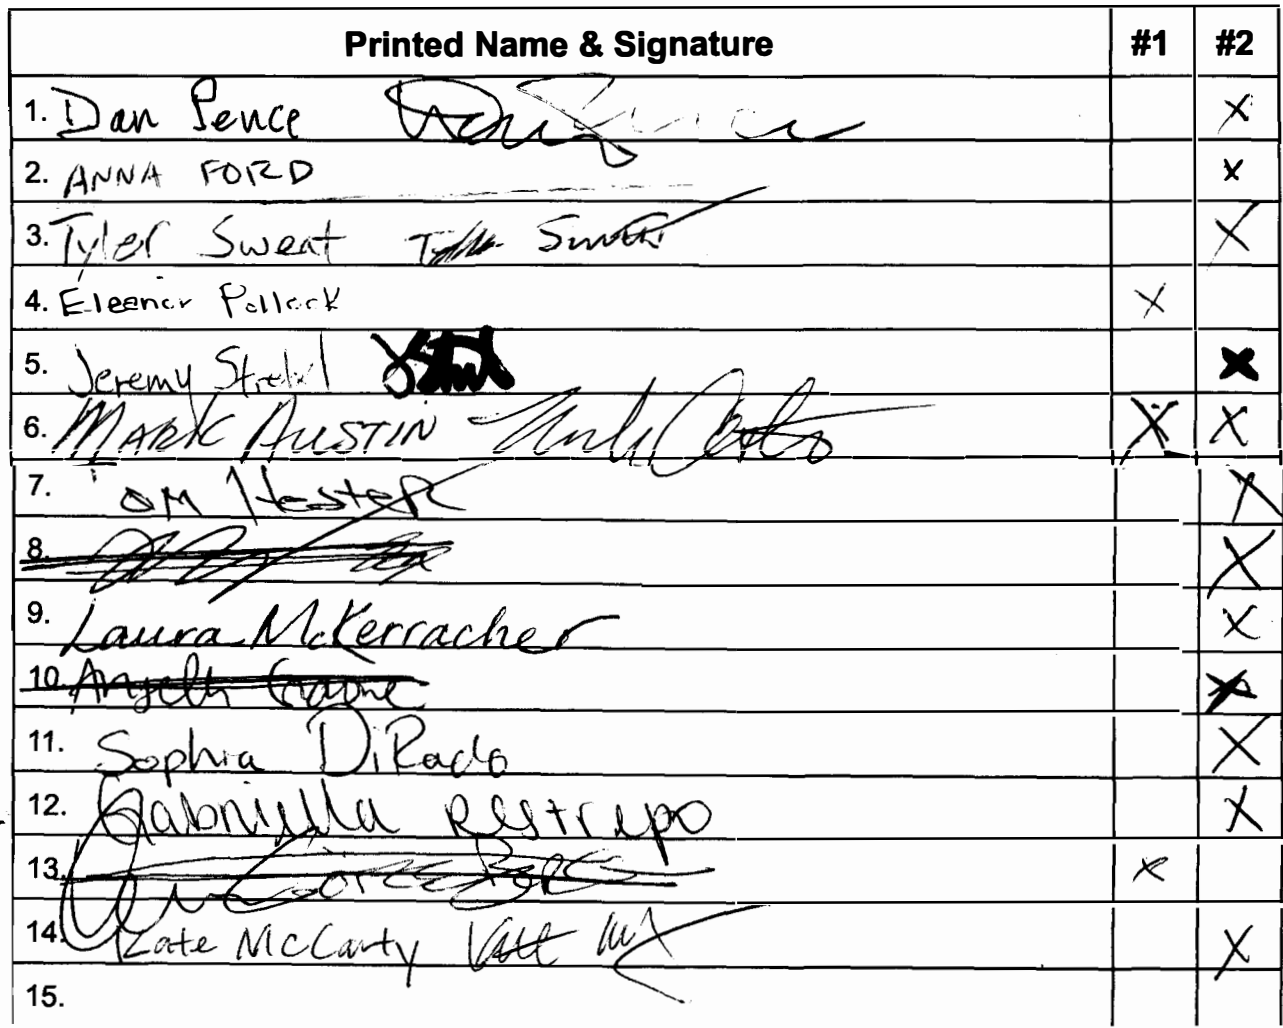 Printed Name & Signature #1 #2
1. Dan Pence X
2. ANNA FORD X
3. Tyler Sweat Tyler Sweat X
4. Eleanor Pollock X
5. Jeremy X
6. MARK AUSTIN X X
7. Tom Hester X
8. X
9. Laura McKerracher X
10. X
11. Sophia DiRado X
12. Gabriella Restrepo X
13. X
14. Kate McCarty X
15.